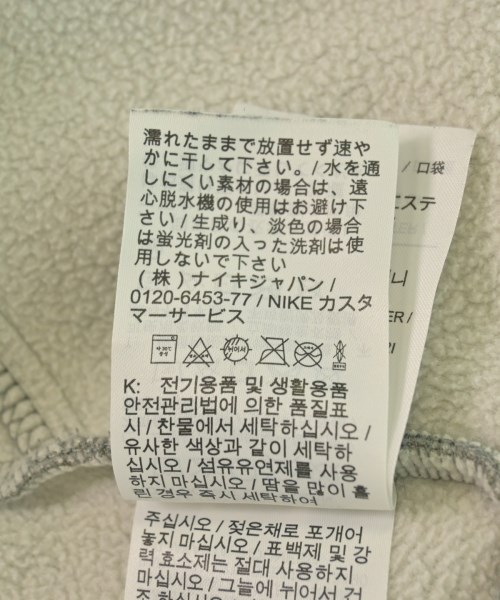 濡れたままで放置せず速や
かに干して下さい。/ 水を通
しにくい素材の場合は、遠
心脱水機の使用はお避け下
さい / 生成り、淡色の場合
は蛍光剤の入った洗剤は使
用しないで下さい
(株) ナイキジャパン /
0120-6453-77 / NIKE カスタ
マーサービス
K: 전기용품 및 생활용품
안전관리법에 의한 품질표
시 / 찬물에서 세탁하십시오 /
유사한 색상과 같이 세탁하
십시오 / 섬유유연제를 사용
하지 마십시오 / 땀을 많이 흘
린 경우 즉시 세탁하여
주십시오 / 젖은채로 포개어
놓지 마십시오 / 표백제 및 강
력 효소제는 절대 사용하지
마십시오 / 그늘에 뉘어서 건
조 하십시오
/ 口袋
エステ
니
ER /